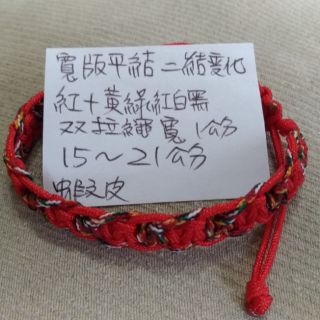 寬版平結 二結變化
紅+黃綠紅白黑
双拉繩 寬 1公分
15～21公分
蝦皮